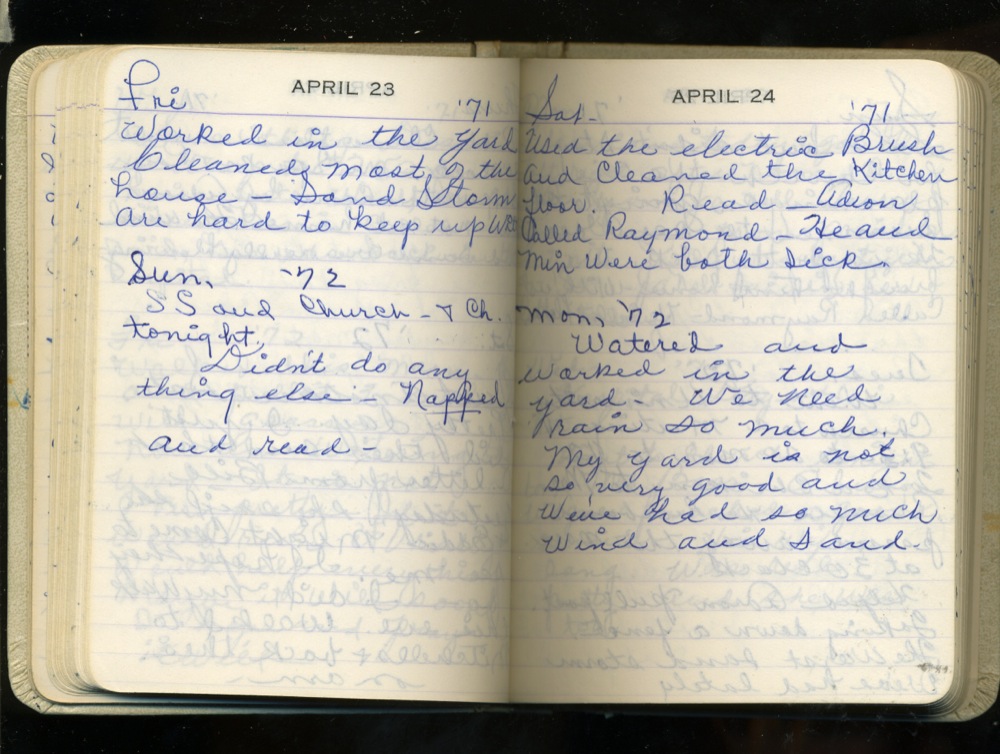 APRIL 23
Fri '71
Worked in the yard
Cleaned most of the
house - Sand Storm
are hard to keep up
Sun, '72
SS and Church - + Ch.
tonight.
Didn't do any
thing else - Napped
and read -
APRIL 24
Sat- '71
Used the electric Brush
and Cleaned the Kitchen
floor. Read - Adron
Called Raymond - He and
Min Were both Sick.
Mon, '72
Watered and
worked in the
yard - We need
rain so much.
My yard is not
so very good and
Weve had so much
Wind and Sand.